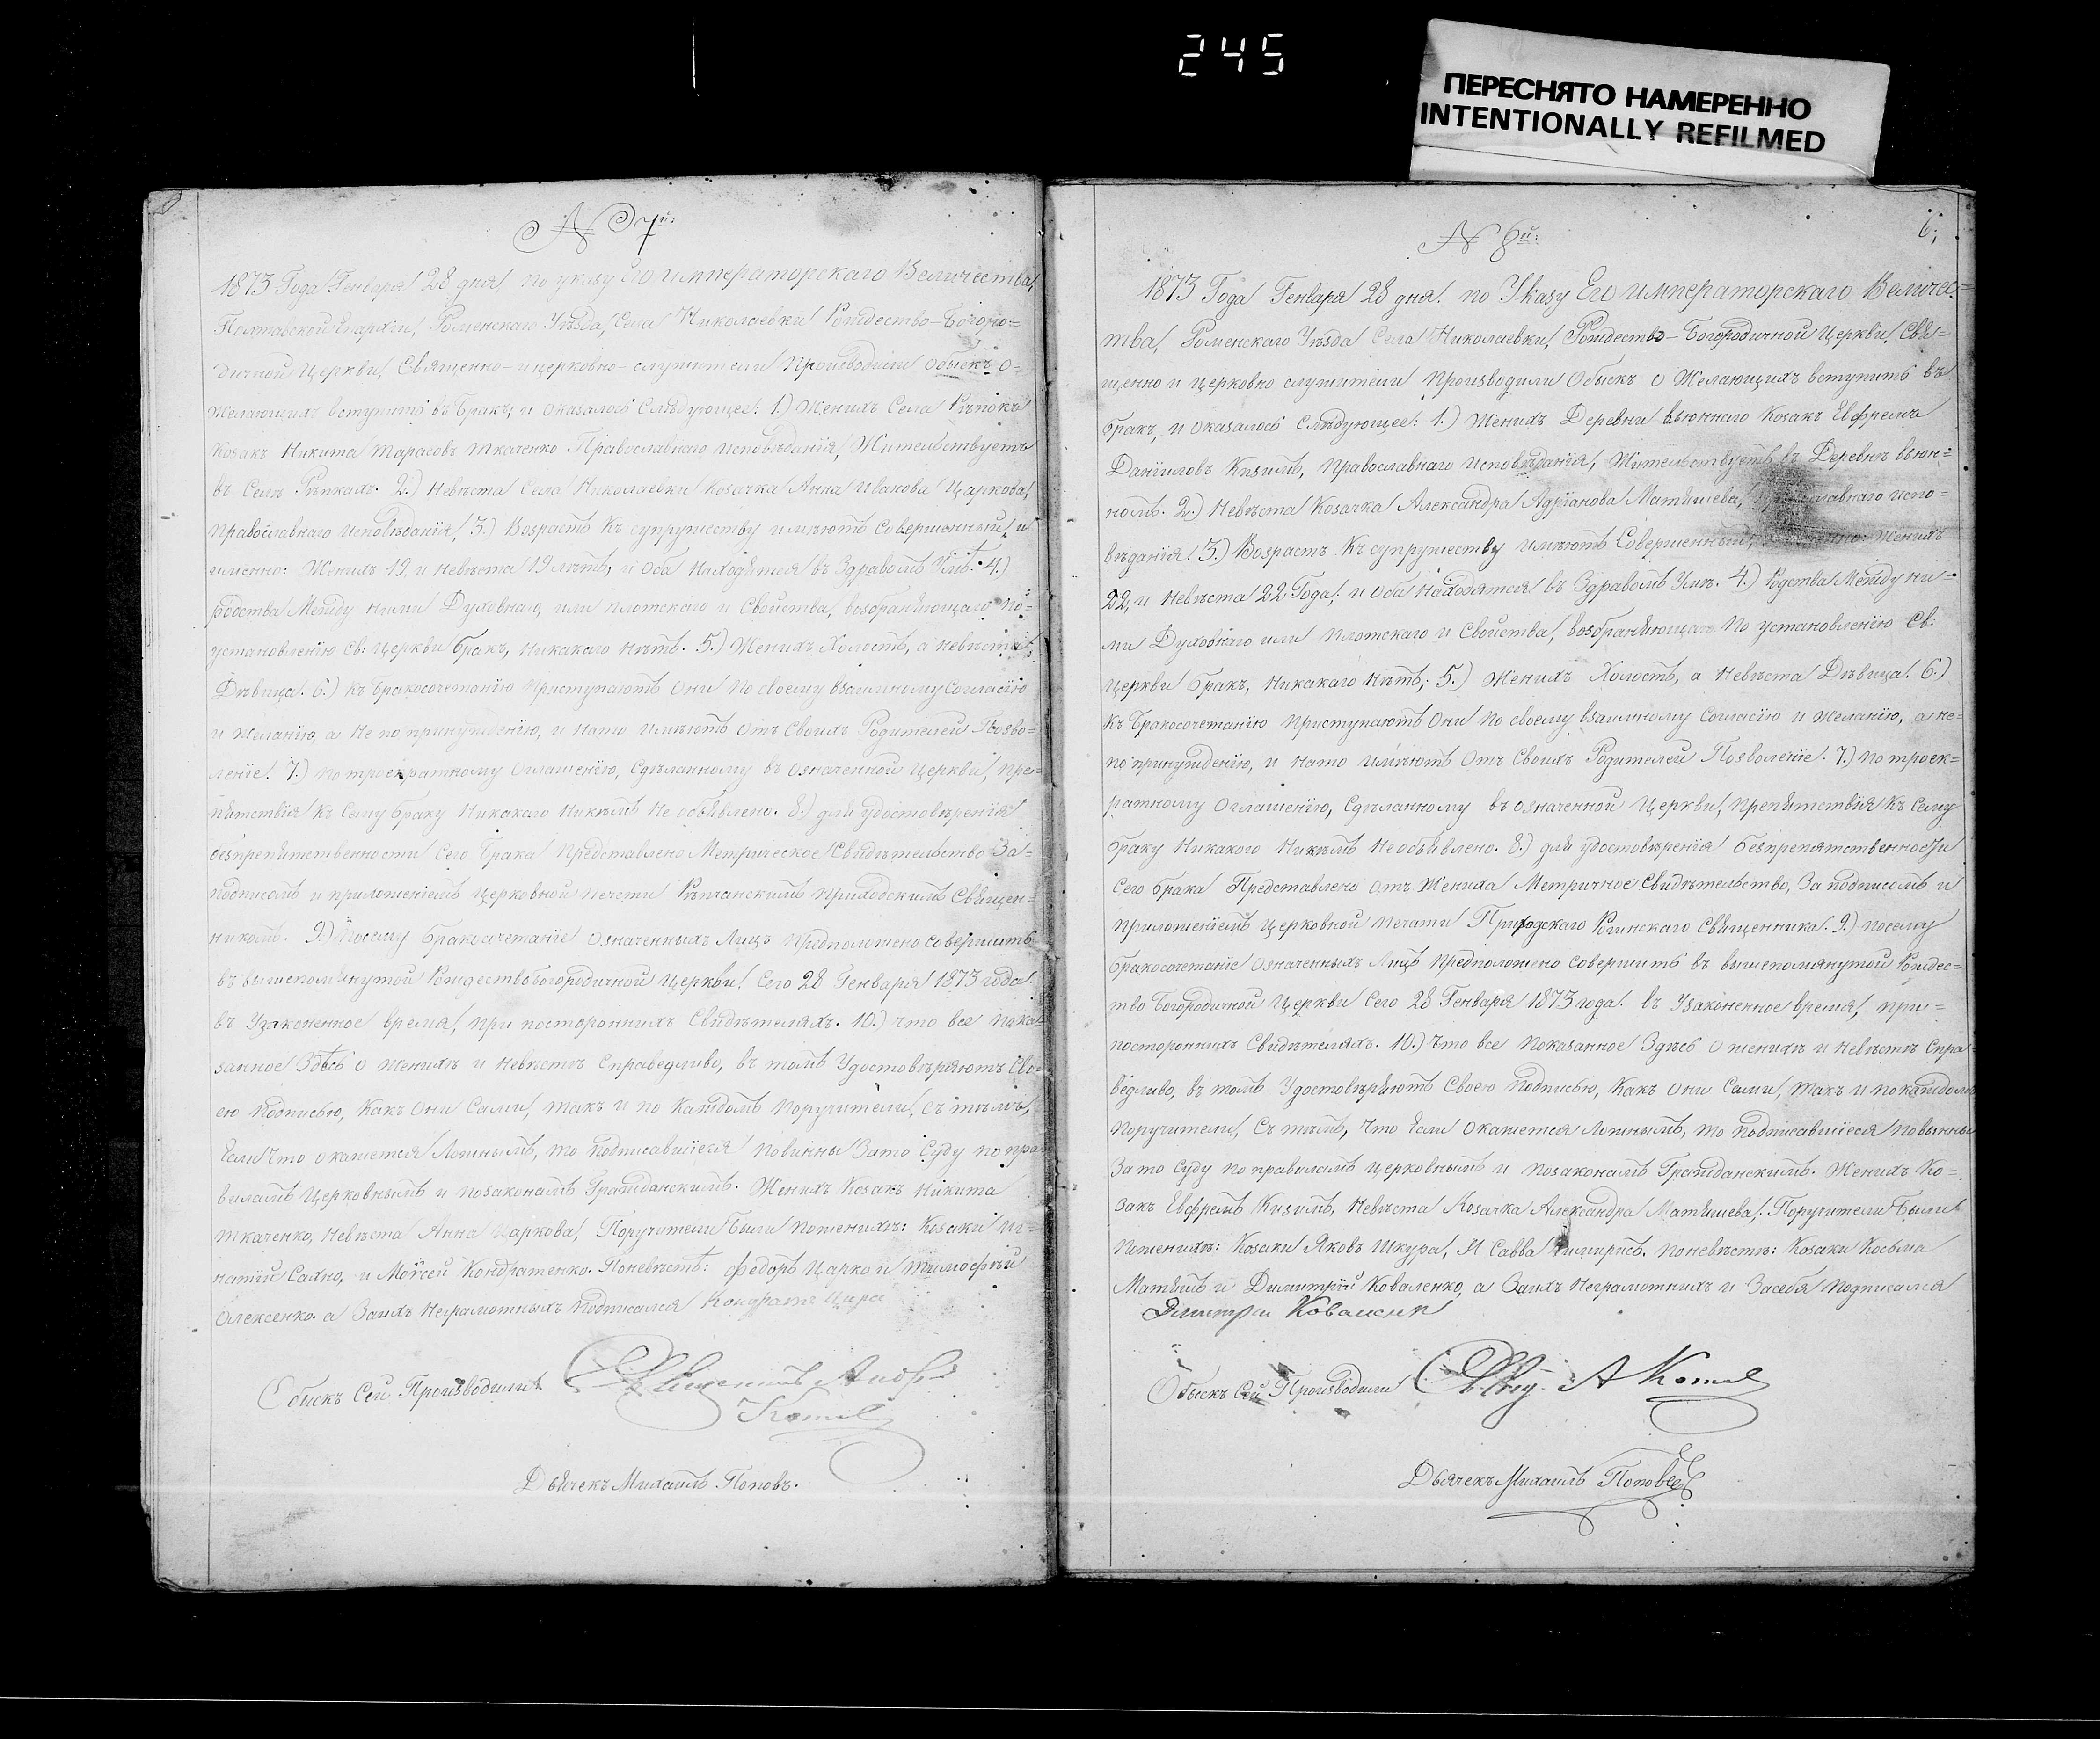 245
ПЕРЕСНЯТО НАМЕРЕННО
INTENTIONALLY REFILMED
№ 7й:
1873 Года Генваря 28 дня по указу Его императорскаго Величества,
Полтавской Епархіи, Роменскаго Уѣзда, Села Николаевки Рождество-Богоро=
дичной Церкви, Священно-и церковно-служители Производили обыскъ о=
желающихъ вступить въ бракъ, и оказалось Слѣдующее: 1.) Женихъ Села Рѣпокъ
козакъ Никита Тарасовъ Ткаченко Православнаго исповѣданія, Жительствуетъ
въ Селѣ Рѣпкахъ. 2.) Невѣста Села Николаевки козачка Анна Иванова Царкова,
православнаго исповѣданія, 3.) Возрастъ къ супружеству имѣютъ Совершенный, и
именно: Женихъ 19, и невѣста 19 лѣтъ, и оба находятся въ Здравомъ Умѣ. 4.)
родства Между ними Духовнаго, или плотскаго и Свойства, возбраняющаго по=
установленію Св: Церкви бракъ, никакаго нѣтъ. 5.) Женихъ Холостъ, а невѣста
Дѣвица. 6.) къ бракосочетанію приступаютъ Они по своему взаимному согласію
и желанію, а не по принужденію, и на то имѣютъ Отъ Своихъ Родителей Позво=
леніе. 7.) по троекратному Оглашенію, Сдѣланному въ означенной Церкви, пре=
пятствія къ Сему браку Никакаго Никѣмъ не объявлено. 8.) для удостовѣренія
безпрепятственности Сего брака представлено Метрическое Свидѣтельство За=
подписомъ и приложеніемъ церковной печати Рѣпчанскимъ приходскимъ Священ=
никомъ. 9.) посему бракосочетаніе означенныхъ Лицъ предположено совершить
въ вышепомянутой Рождество Богородичной Церкви, Сего 28 Генваря 1873 года.
въ Узаконенное время, при постороннихъ Свидѣтеляхъ. 10.) что все пока=
занное Здѣсь о женихѣ и невѣстѣ Справедливо, въ томъ Удостовѣряютъ Сво=
ею подписью, какъ Они Сами, такъ и по каждомъ поручители, съ тѣмъ,
Если Что окажется Ложнымъ, то подписавшіеся повинны За то Суду по пра=
виламъ Церковнымъ и по законамъ Гражданскимъ. Женихъ козакъ Никита
Ткаченко, Невѣста Анна Царкова, Поручители были по женихѣ: козаки Иг=
натій Сахно, и Моѵсей Кондратенко. По невѣстѣ: Федоръ Царко и Тимофѣй
Олексенко. а За ихъ неграмотныхъ подписался
Обискъ Сей Производили
Дьячекъ Михаилъ Поповъ.
6;
№ 8й:
1873 Года Генваря 28 дня. по Указу Его императорскаго Величес=
тва, Роменскаго Уѣзда Села Николаевки, Рождество-Богородичной Церкви, Свя=
щенно и церковно служители Производили Обыскъ о Желающихъ вступить въ
бракъ, и оказалось Слѣдующее: 1.) Женихъ Деревни вьюннаго Козакъ Евфремъ
Даніиловъ Кизимъ, православнаго исповѣданія, Жительствуетъ въ Деревнѣ вьюн=
номъ. 2.) Невѣста Козачка Александра Адріанова Матяшева, испо=
вѣданія. 3.) Возрастъ къ супружеству имѣютъ Совершенный, Женихъ
22, и Невѣста 22 Года, и оба находятся въ Здравомъ Умѣ. 4.) Родства Между ни=
ми Духовнаго или плотскаго и Свойства, возбраняющаго По установленію Св:
Церкви бракъ, никакаго нѣтъ; 5.) Женихъ Холостъ, а Невѣста Дѣвица. 6.)
къ бракосочетанію приступаютъ Они по своему взаимному согласію и желанію, а не=
по принужденію, и на то имѣютъ Отъ Своихъ Родителей Позволеніе. 7.) по троек=
ратному Оглашенію, Сдѣланному въ означенной Церкви, препятствія къ Сему
браку Никакого Никѣмъ не объявлено. 8.) для удостовѣренія безпрепятственности
Сего брака Представлено отъ Жениха Метричное Свидѣтельство, За подписомъ и
приложеніемъ церковной печати Приходскаго Рогинскаго Священника. 9.) посему
бракосочетаніе означенныхъ Лицъ предположено совершить въ вышепомянутой Рождес=
тво Богородичной Церкви Сего 28 Генваря 1873 года. въ Узаконенное время, при=
постороннихъ Свидѣтеляхъ. 10.) Что все показанное Здѣсь о женихѣ и невѣстѣ Спра=
ведливо, въ томъ Удостовѣряютъ Своею подписью, какъ Они Сами, такъ и по каждомъ
поручители, Съ тѣмъ, Что Если окажется Ложнымъ, то подписавшіеся повинны
За то Суду по правиламъ церковнымъ и по законамъ Гражданскимъ. Женихъ Ко=
закъ Евфремъ Кизимъ, Невѣста Козачка Александра Матяшева, Поручители были
по женихѣ: Козаки Яковъ Шкура, И Савва по невѣстѣ: Козаки Косьма
Матяшъ и Димитрій Коваленко, а За ихъ Неграмотныхъ и За себя подписался
Дмитри Коваленк
Обыскъ Сей Производили
Дьячекъ Михаилъ Поповъ